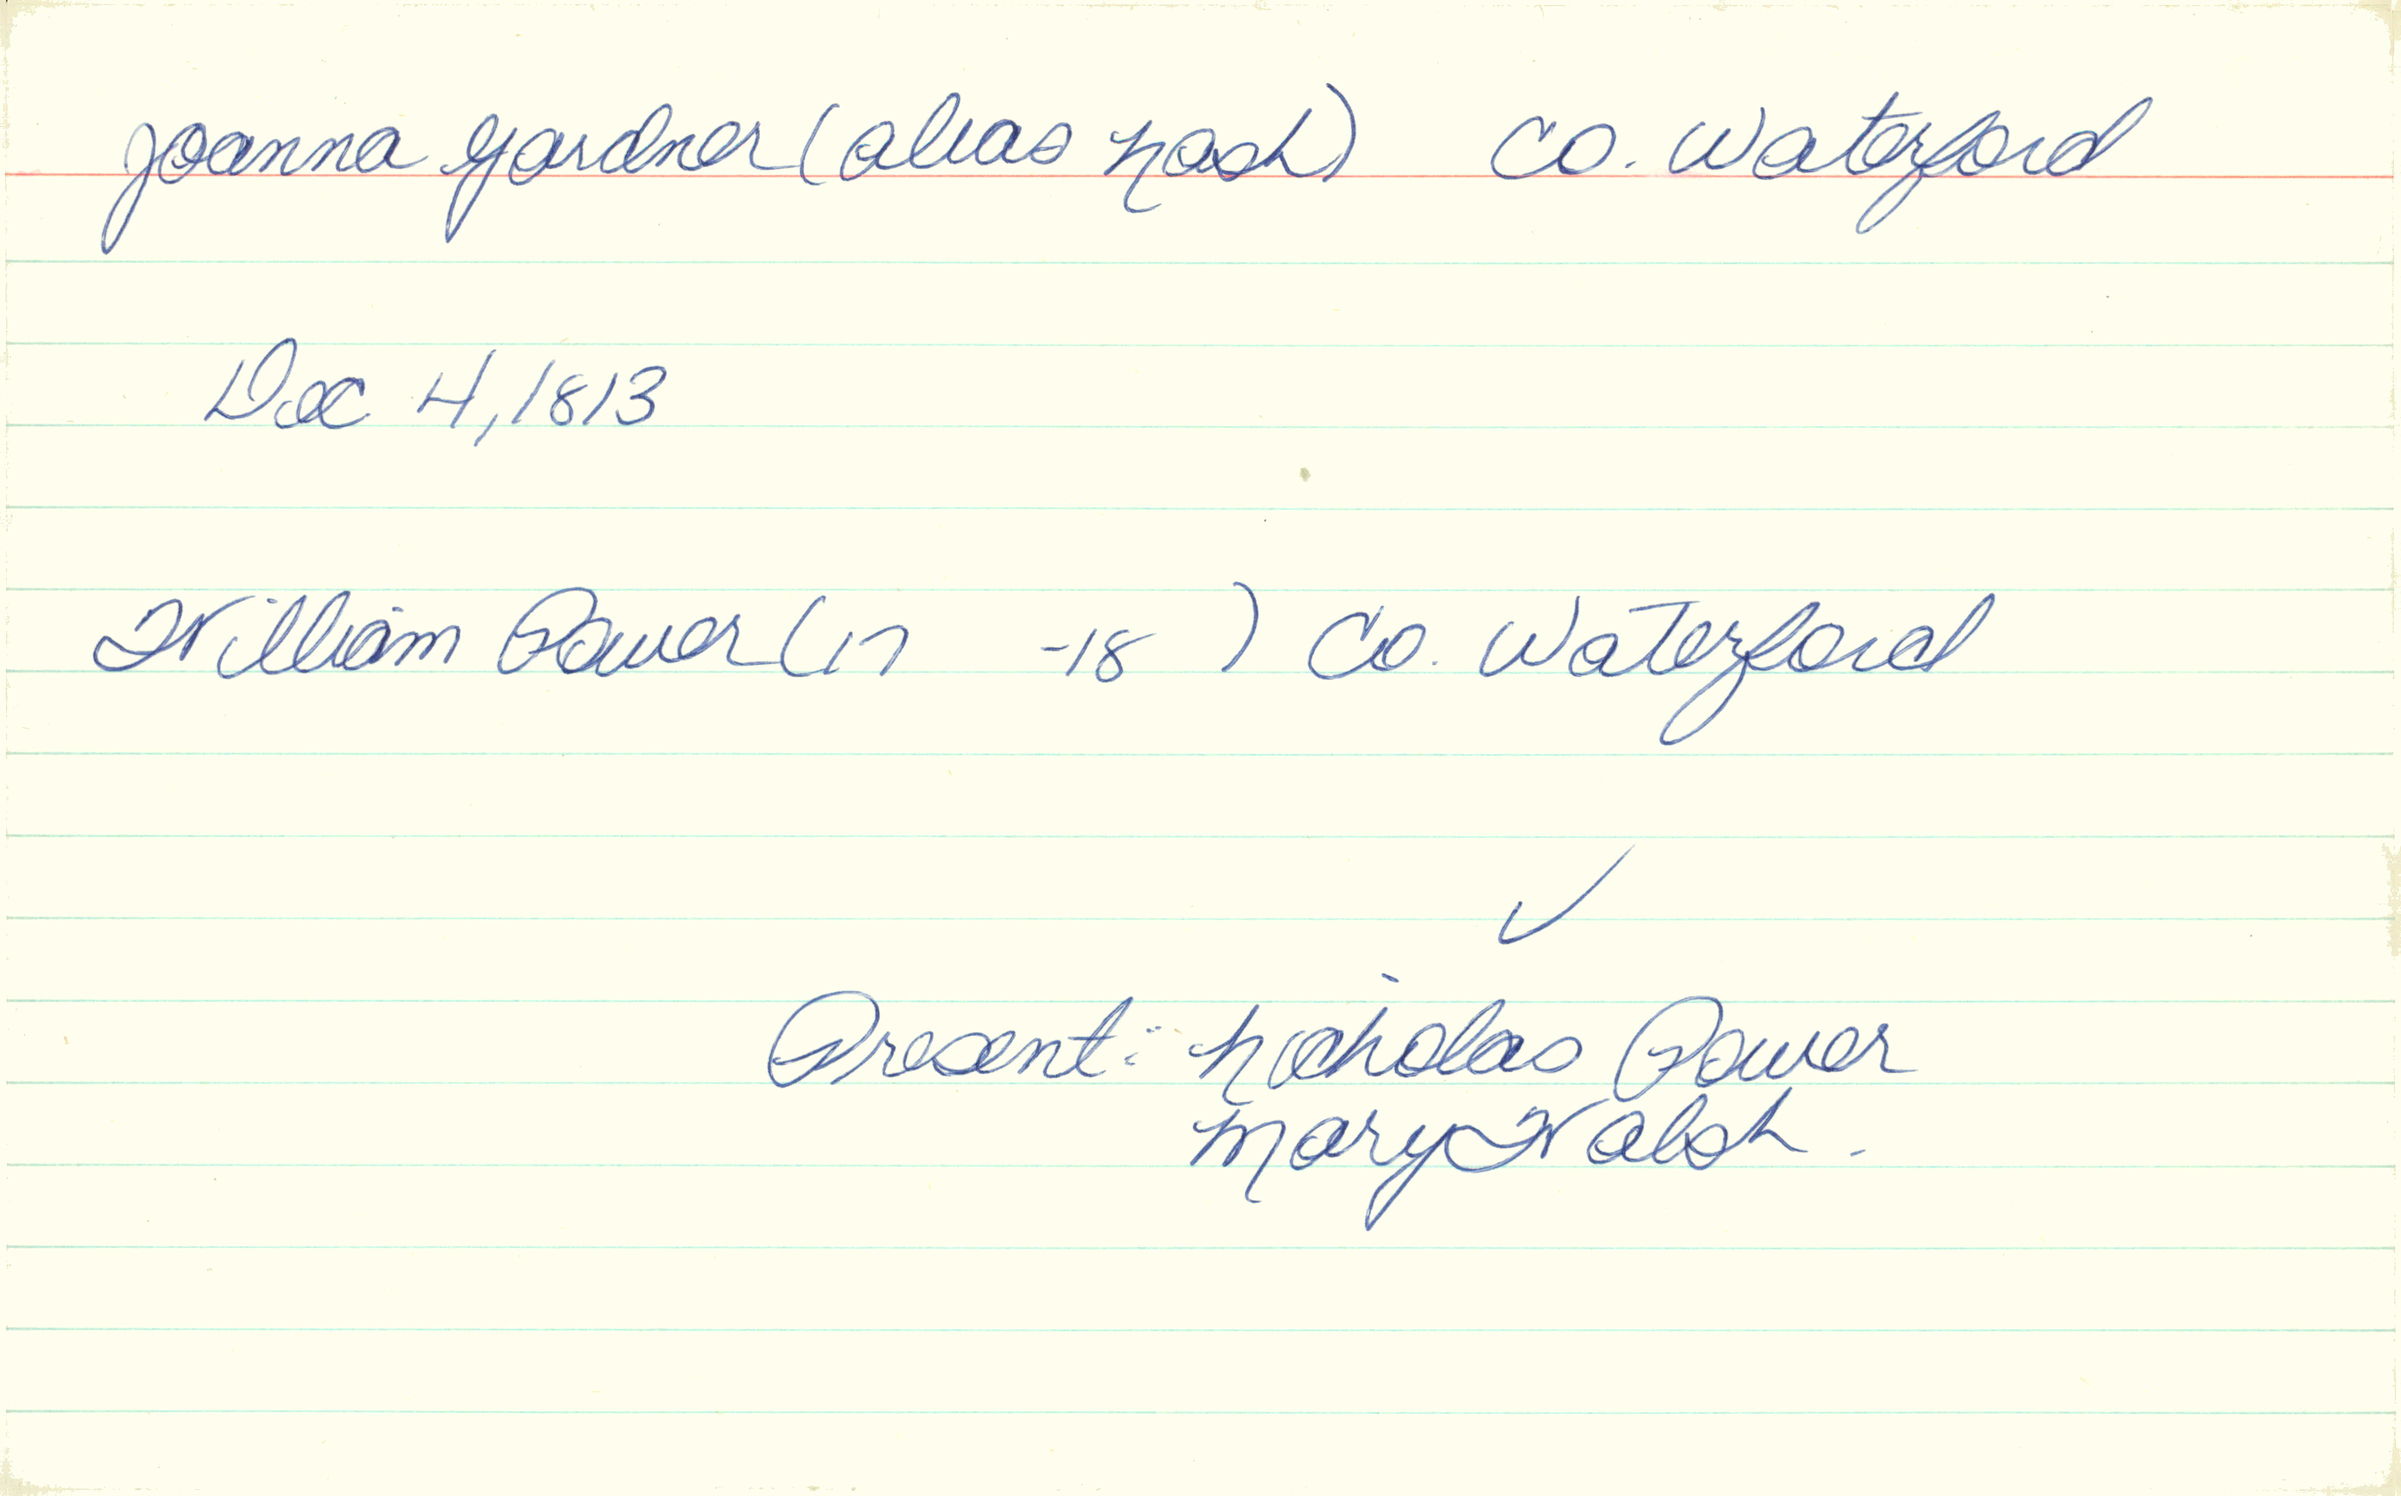 Joanna Gardner (alias Nash) Co. Waterford
Dec 4, 1813
William Power (17 -18 ) Co. Waterford
✓
Present: Nicholas Power
Mary Walsh.